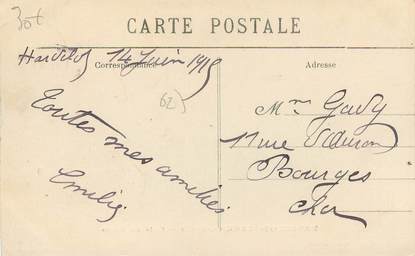 30t
CARTE POSTALE
Correspondance
Adresse
Hardelot 14 Juin 1919
62
Toutes mes amitiés
Emilie
Mme Gavy
11 rue
Bourges
Cher